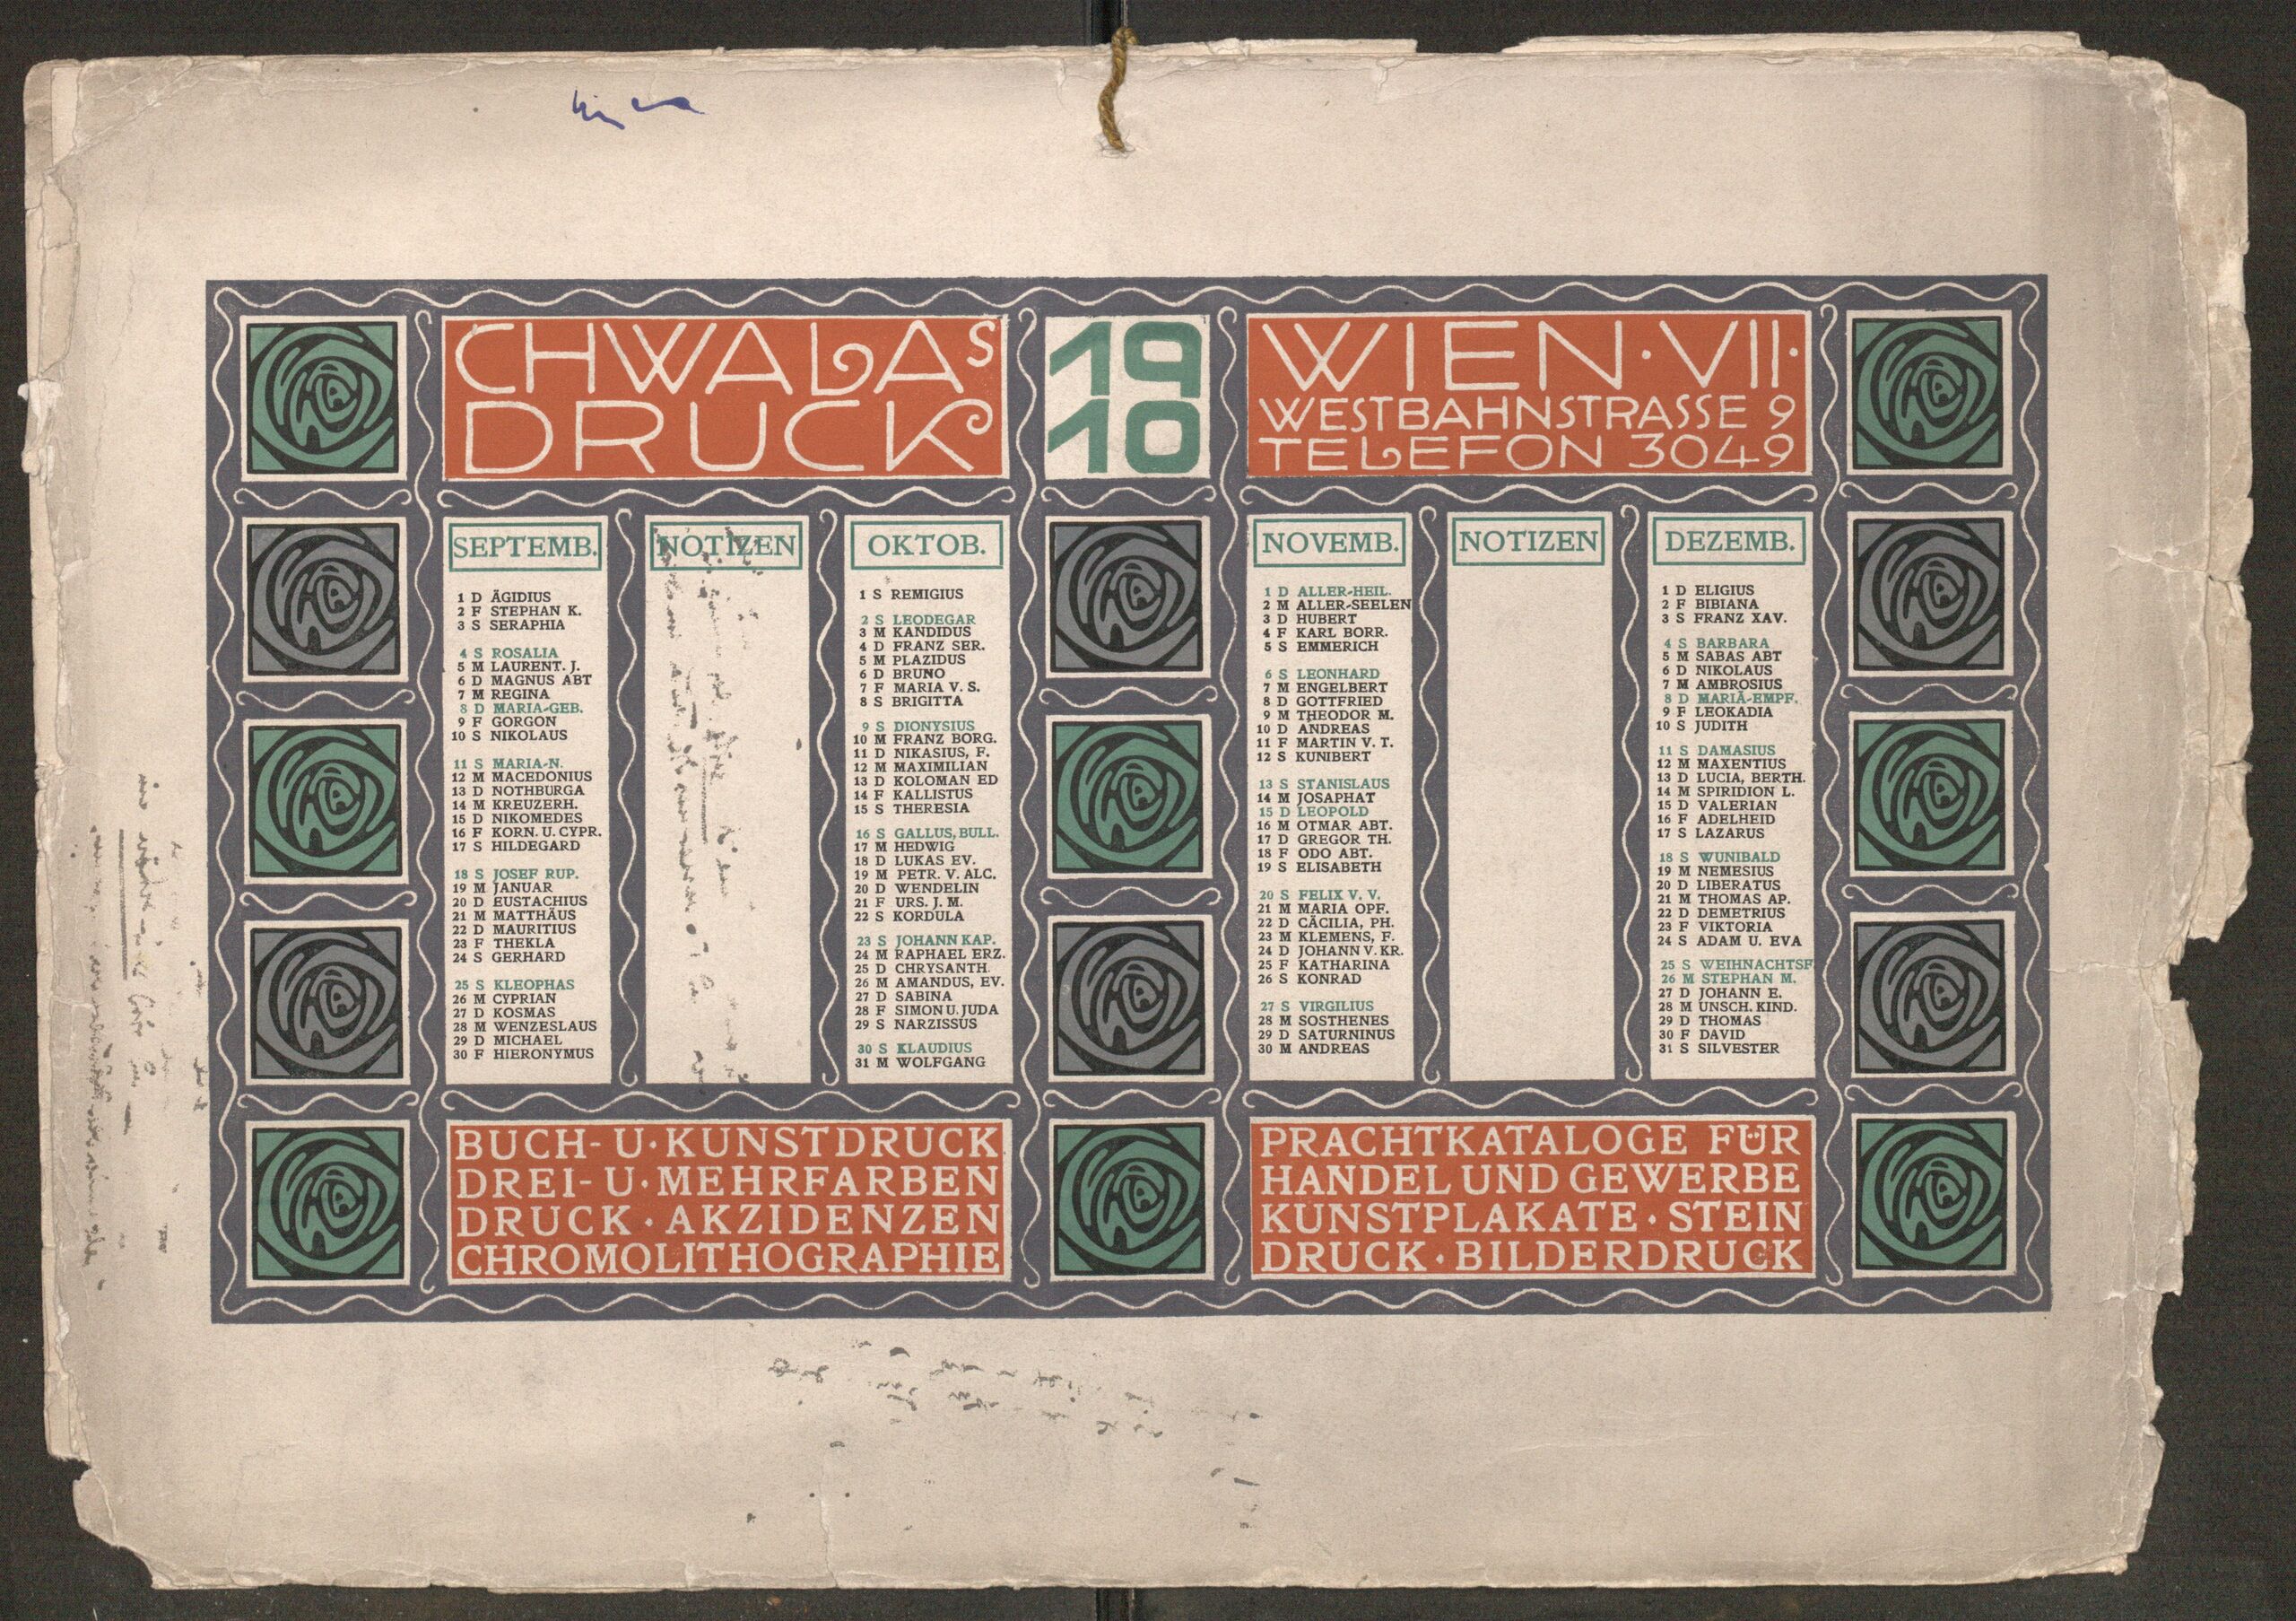 CHWALAS
DRUCK
19
10
WIEN·VII·
WESTBAHNSTRASSE 9
TELEFON 3049
SEPTEMB.
1 D ÄGIDIUS
2 F STEPHAN K.
3 S SERAPHIA
4 S ROSALIA
5 M LAURENT. J.
6 D MAGNUS ABT
7 M REGINA
8 D MARIA-GEB.
9 F GORGON
10 S NIKOLAUS
11 S MARIA-N.
12 M MACEDONIUS
13 D NOTHBURGA
14 M KREUZERH.
15 D NIKOMEDES
16 F KORN. U. CYPR.
17 S HILDEGARD
18 S JOSEF RUP.
19 M JANUAR
20 D EUSTACHIUS
21 M MATTHÄUS
22 D MAURITIUS
23 F THEKLA
24 S GERHARD
25 S KLEOPHAS
26 M CYPRIAN
27 D KOSMAS
28 M WENZESLAUS
29 D MICHAEL
30 F HIERONYMUS
NOTIZEN
OKTOB.
1 S REMIGIUS
2 S LEODEGAR
3 M KANDIDUS
4 D FRANZ SER.
5 M PLAZIDUS
6 D BRUNO
7 F MARIA V. S.
8 S BRIGITTA
9 S DIONYSIUS
10 M FRANZ BORG.
11 D NIKASIUS, F.
12 M MAXIMILIAN
13 D KOLOMAN ED
14 F KALLISTUS
15 S THERESIA
16 S GALLUS, BULL.
17 M HEDWIG
18 D LUKAS EV.
19 M PETR. V. ALC.
20 D WENDELIN
21 F URS. J. M.
22 S KORDULA
23 S JOHANN KAP.
24 M RAPHAEL ERZ.
25 D CHRYSANTH.
26 M AMANDUS, EV.
27 D SABINA
28 F SIMON U. JUDA
29 S NARZISSUS
30 S KLAUDIUS
31 M WOLFGANG
NOVEMB.
1 D ALLER-HEIL.
2 M ALLER-SEELEN
3 D HUBERT
4 F KARL BORR.
5 S EMMERICH
6 S LEONHARD
7 M ENGELBERT
8 D GOTTFRIED
9 M THEODOR M.
10 D ANDREAS
11 F MARTIN V. T.
12 S KUNIBERT
13 S STANISLAUS
14 M JOSAPHAT
15 D LEOPOLD
16 M OTMAR ABT.
17 D GREGOR TH.
18 F ODO ABT.
19 S ELISABETH
20 S FELIX V. V.
21 M MARIA OPF.
22 D CÄCILIA, PH.
23 M KLEMENS, F.
24 D JOHANN V. KR.
25 F KATHARINA
26 S KONRAD
27 S VIRGILIUS
28 M SOSTHENES
29 D SATURNINUS
30 M ANDREAS
NOTIZEN
DEZEMB.
1 D ELIGIUS
2 F BIBIANA
3 S FRANZ XAV.
4 S BARBARA
5 M SABAS ABT
6 D NIKOLAUS
7 M AMBROSIUS
8 D MARIÄ-EMPF.
9 F LEOKADIA
10 S JUDITH
11 S DAMASIUS
12 M MAXENTIUS
13 D LUCIA, BERTH.
14 M SPIRIDION L.
15 D VALERIAN
16 F ADELHEID
17 S LAZARUS
18 S WUNIBALD
19 M NEMESIUS
20 D LIBERATUS
21 M THOMAS AP.
22 D DEMETRIUS
23 F VIKTORIA
24 S ADAM U. EVA
25 S WEIHNACHTSF
26 M STEPHAN M.
27 D JOHANN E.
28 M UNSCH. KIND.
29 D THOMAS
30 F DAVID
31 S SILVESTER
BUCH- U· KUNSTDRUCK
DREI- U· MEHRFARBEN
DRUCK · AKZIDENZEN
CHROMOLITHOGRAPHIE
PRACHTKATALOGE FÜR
HANDEL UND GEWERBE
KUNSTPLAKATE · STEIN
DRUCK · BILDERDRUCK